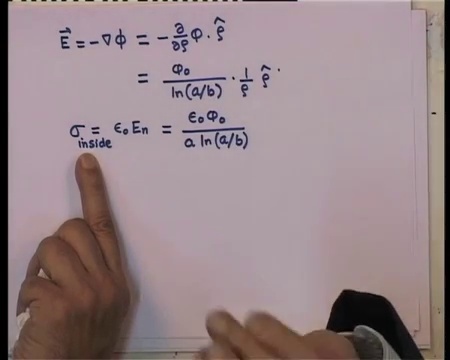 E⃗ = -∇ϕ = -∂/∂ρ ϕ · ρ̂
= ϕ₀/ln(a/b) · 1/ρ ρ̂
σ inside = ϵ₀ Eₙ = ϵ₀ϕ₀/a ln(a/b)